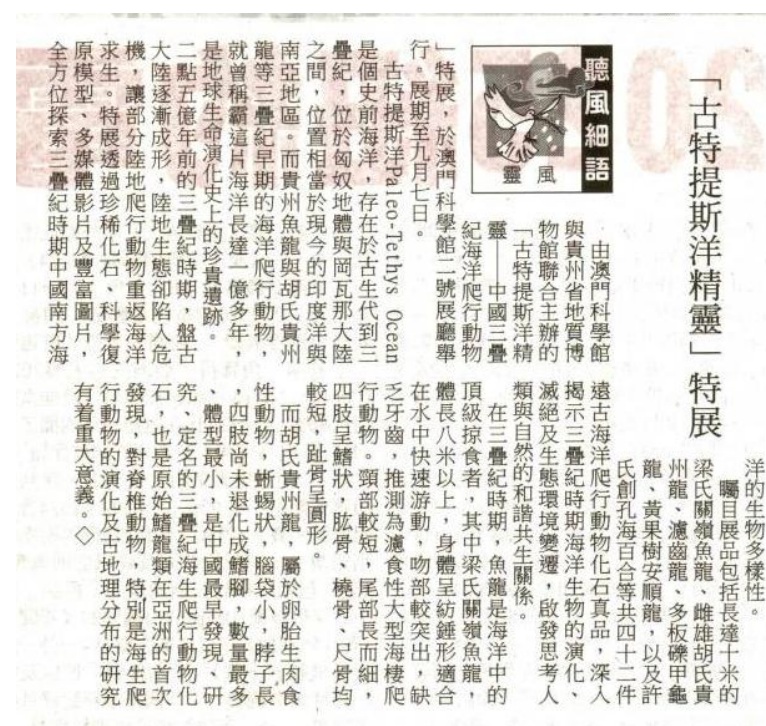 「古特提斯洋精靈」特展
聽風細語
風靈
由澳門科學館
與貴州省地質博
物館聯合主辦的
「古特提斯洋精
靈——中國三疊
紀海洋爬行動物
」特展，於澳門科學館二號展廳舉
行。展期至九月七日。
古特提斯洋Paleo-Tethys Ocean
是個史前海洋，存在於古生代到三
疊紀，位於匈奴地體與岡瓦那大陸
之間，位置相當於現今的印度洋與
南亞地區。而貴州魚龍與胡氏貴州
龍等三疊紀早期的海洋爬行動物，
就曾稱霸這片海洋長達一億多年，
是地球生命演化史上的珍貴遺跡。
二點五億年前的三疊紀時期，盤古
大陸逐漸成形，陸地生態卻陷入危
機，讓部分陸地爬行動物重返海洋
求生。特展透過珍稀化石、科學復
原模型、多媒體影片及豐富圖片，
全方位探索三疊紀時期中國南方海
洋的生物多樣性。
矚目展品包括長達十米的
梁氏關嶺魚龍、雌雄胡氏貴
州龍、濾齒龍、多板礫甲龜
龍、黃果樹安順龍，以及許
氏創孔海百合等共四十二件
遠古海洋爬行動物化石真品，深入
揭示三疊紀時期海洋生物的演化、
滅絕及生態環境變遷，啟發思考人
類與自然的和諧共生關係。
在三疊紀時期，魚龍是海洋中的
頂級掠食者，其中梁氏關嶺魚龍，
體長八米以上，身體呈紡錘形適合
在水中快速游動，吻部較突出，缺
乏牙齒，推測為濾食性大型海棲爬
行動物。頸部較短，尾部長而細，
四肢呈鰭狀，肱骨、橈骨、尺骨均
較短，趾骨呈圓形。
而胡氏貴州龍，屬於卵胎生肉食
性動物，蜥蜴狀，腦袋小，脖子長
，四肢尚未退化成鰭腳，數量最多
，體型最小，是中國最早發現、研
究、定名的三疊紀海生爬行動物化
石，也是原始鰭龍類在亞洲的首次
發現，對脊椎動物，特別是海生爬
行動物的演化及古地理分布的研究
有着重大意義。◇